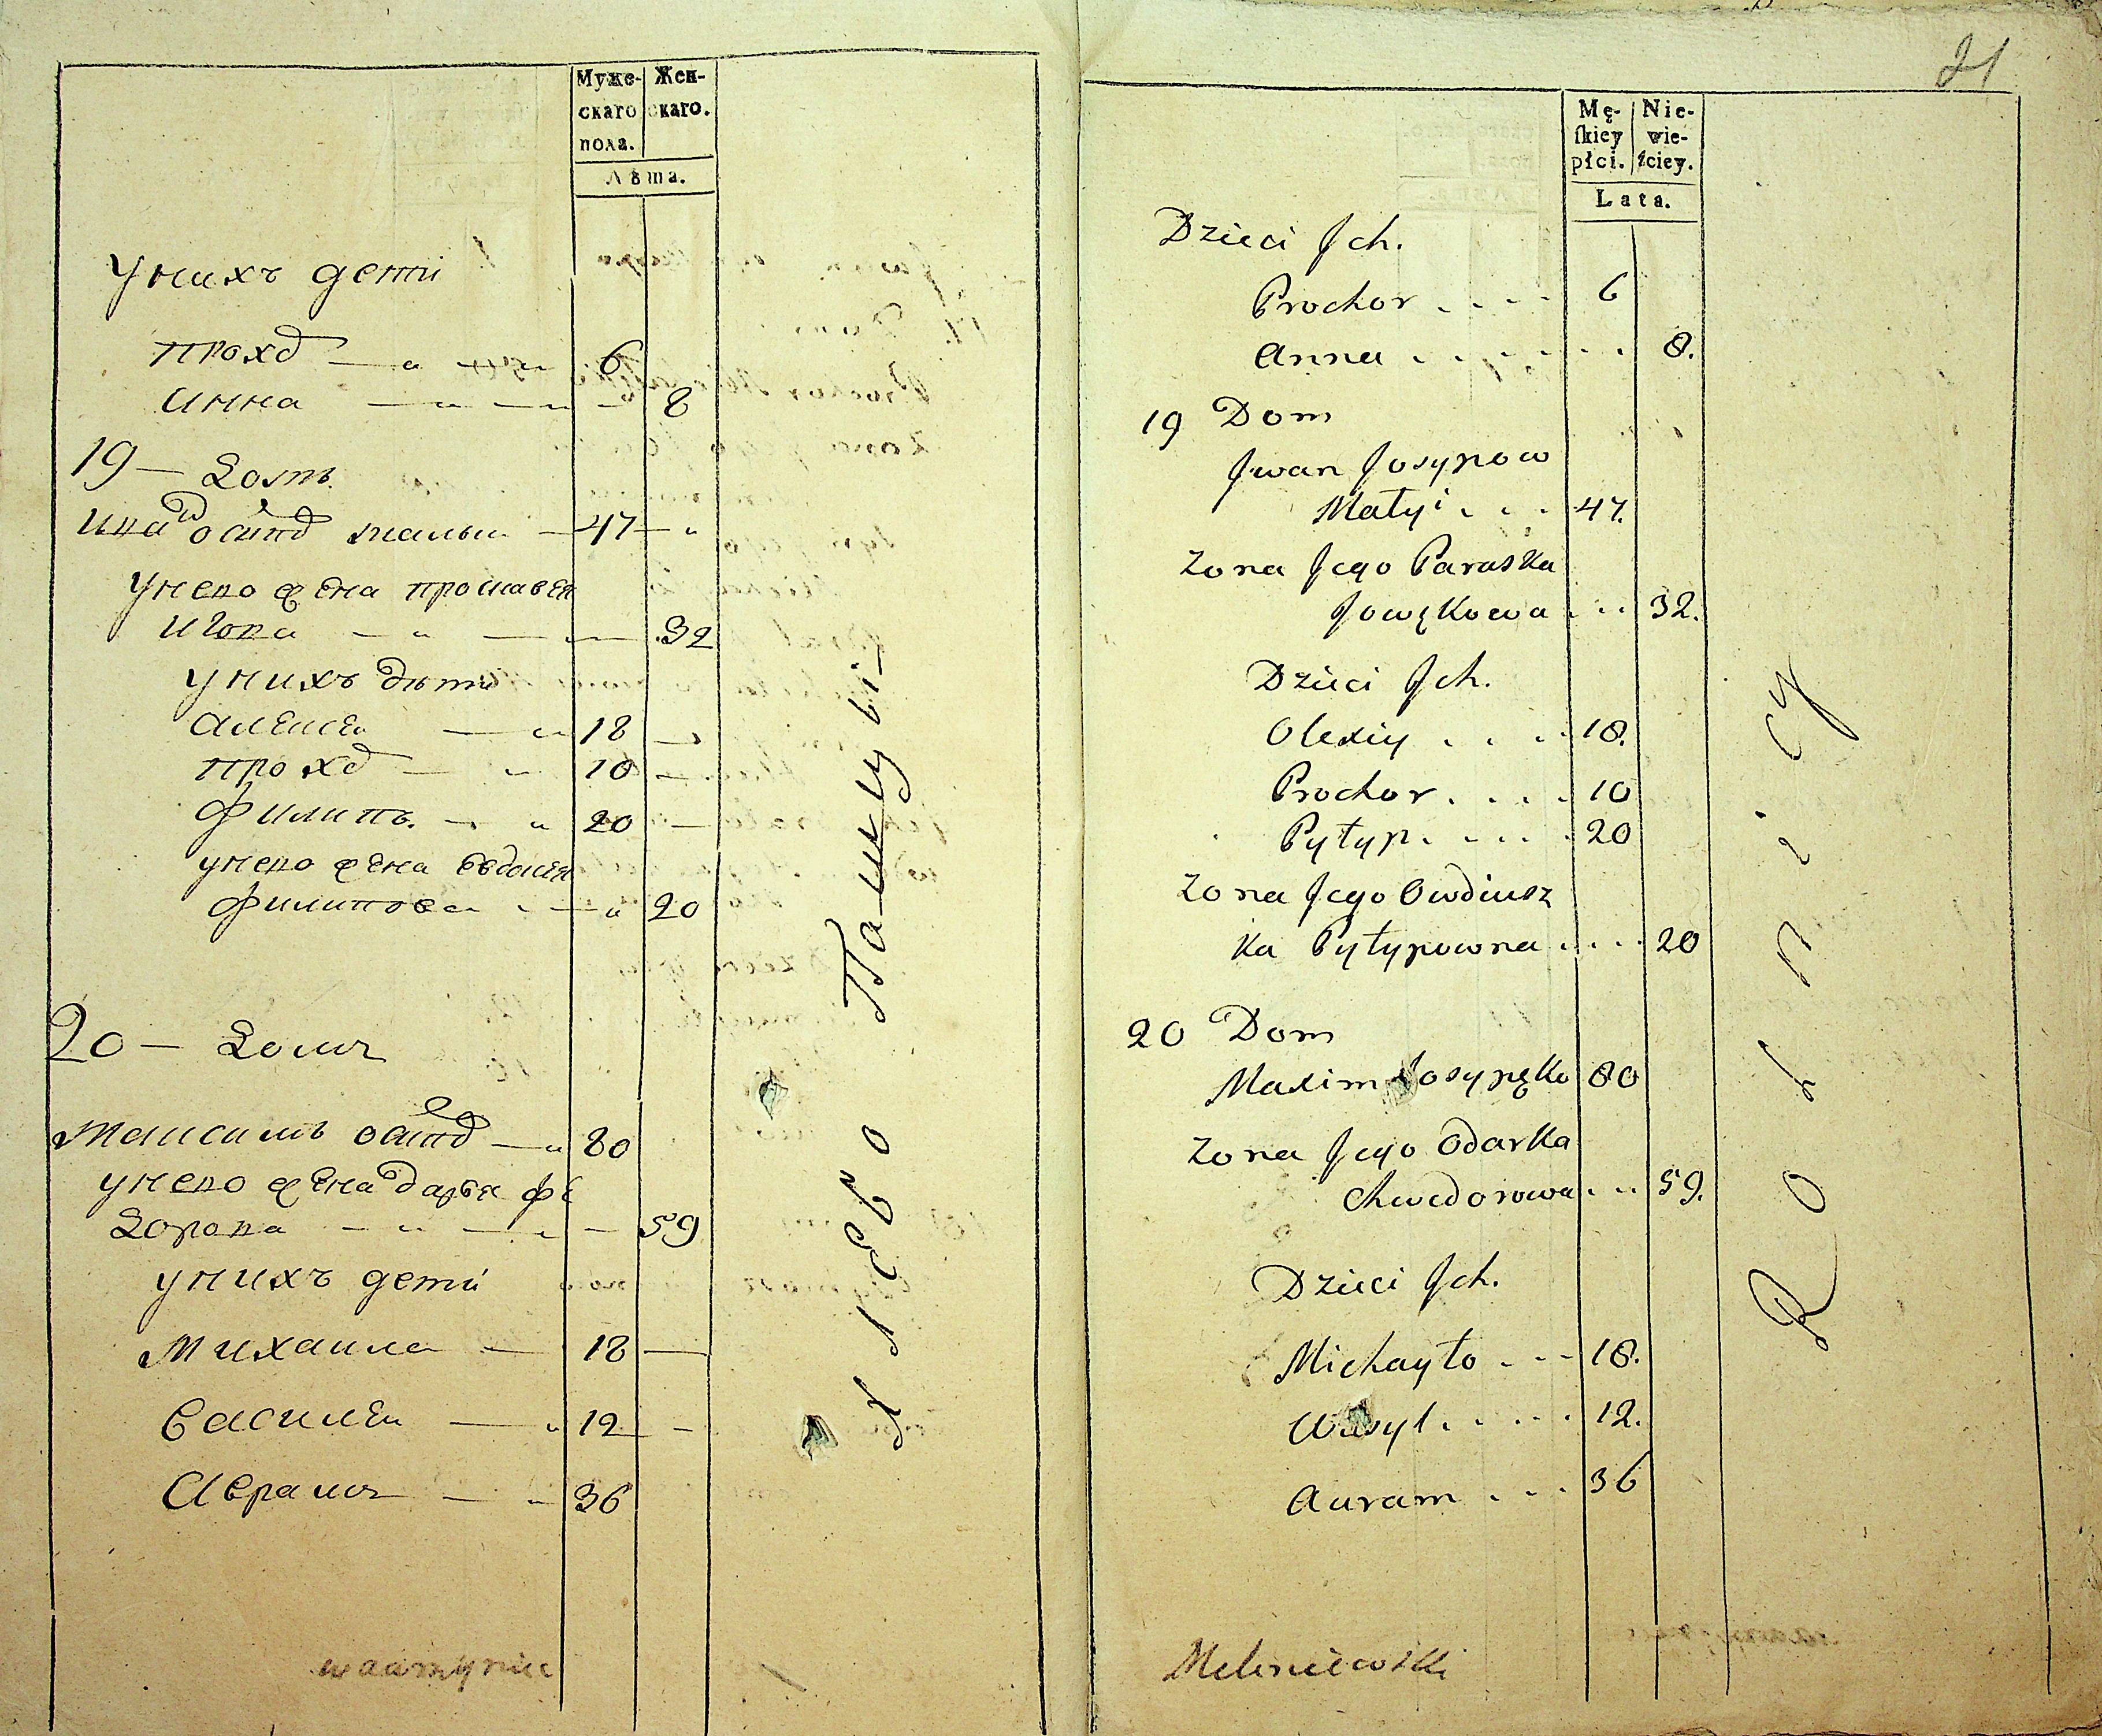 Муже-
скаго
пола.
Жен-
скаго.
Лѣта.
У нихъ дети
Прохо 6
Анна 8
19 — Домъ
Ива Осипо Малыи — 47 —
У него жена Просковея
Ивова 32
У нихъ дѣти
Алексеи 18
Прохо 10
Филипъ 20
У него жена Евдокея
Филипова 20
20 — Домъ
Максимъ Осипо 80
У него жена Дарея Фе
дорова 59
У нихъ дети
Михаила 18
Василеи 12
Аврамъ 36
21
Mę-
ſkiey
płci.
Nie-
wie-
ściey.
Lata.
Dzieci Jch.
Prochor 6
Anna 8.
19 Dom
Jwan Josypow
Małyi 47.
Zona Jego Paraska
Jowękowa 32.
Dzieci Jch.
Olexiy 18.
Prochor 10
Pyłyp 20
Zona Jego Owdiusz
ka Pyłypowna 20
20 Dom
Maxim Josypęko 80
Zona Jego Odarka
Chwedorowa 59.
Dzieci Jch.
Michayło 18.
Wasyl 12.
Auram 36
Rolnicy